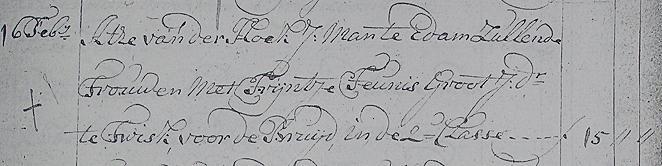 16 Feb: Atze van der Hoek J: Man te Edam Zullende
Trouwen Met Trijntje Teunis Groot J: dr
te Twisk, voor de Bruijd, in de 2e Classe ---- f 15 " "